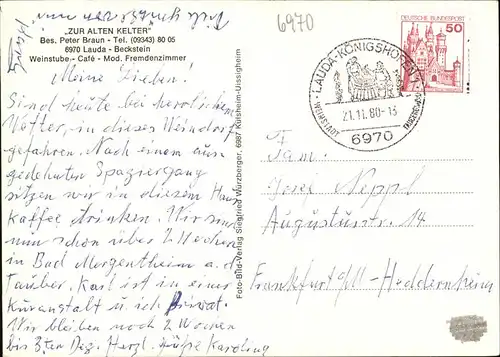 6970
"ZUR ALTEN KELTER"
Bes. Peter Braun - Tel. (09343) 80 05
6970 Lauda - Beckstein
Weinstube - Café - Mod. Fremdenzimmer
Meine Lieben!
Sind heute bei herrlichem
Wetter, in dieses Weindorf
gefahren. Nach einem aus-
gedehnten Spaziergang
sitzen wir in diesem Haus
Kaffee drinken. Wir sind
nun schon über 2 Wochen
in Bad Mergentheim a. d.
Tauber. Karl ist in einer
Kuranstalt u. ich Privat.
Wir bleiben noch 2 Wochen
bis 3ten Dez. Herzl. Grüße Karoline
Foto-Bild-Verlag Siegfried Würzberger, 6987 Külsheim-Uissigheim
DEUTSCHE BUNDESPOST
50
LAUDA-KÖNIGSHOFEN 1
21.11.80-13
WEINSTADT
6970
Fam.
Josef Neppl
Augustusstr. 14
Frankfurt a/M - Heddernheim